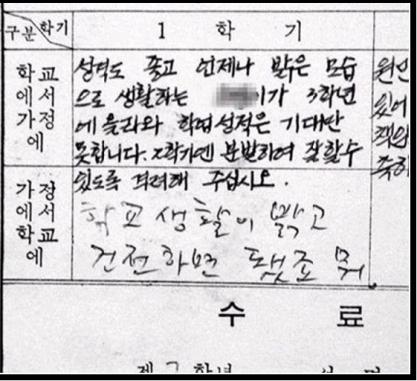 구분 학기
1 학 기
학 교
에 서
가 정
에
성덕도 좋고 언제나 밝은 모습
으로 생활하는 이가 3학년
에 올라와 학업성적은 기대만
못합니다. 2학기엔 분발하여 잘할수
있도록 격려해 주십시오.
가 정
에 서
학 교
에
학교생활이 밝고
건전하면 됐죠 뭐
원만
있어
책임
수 료
제 학년